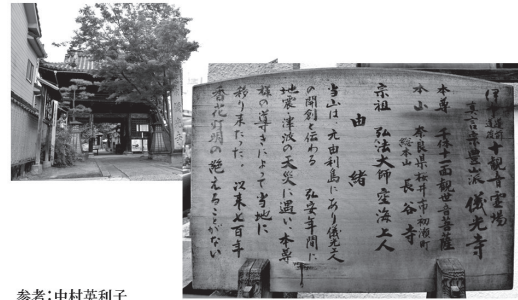 伊予道前道後十観音霊場
真言宗豊山派 儀光寺
本尊 千体十一面観世音菩薩
本山 奈良県桜井市初瀬町
総本山 長谷寺
宗祖 弘法大師 空海上人
由緒
当山は、元由利島にあり儀光上人
の開創と伝わる 弘安年間に
地震、津波の天災に遇い、本尊
様の導きによって当地に
移り来たった、以来七百年
香花灯明の絶えることがない
参考:中村英利子